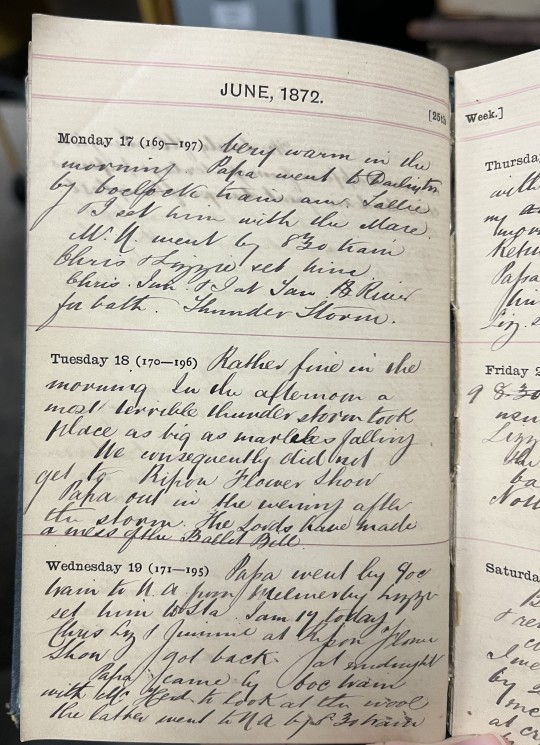 JUNE, 1872.
[25th
Monday 17 (169—197) Very warm in the
morning Papa went to Darlington
by 6oclock train am. Sallie
& I set him with the Mare.
Mr. N went by 8.30 train
Chris & Lizzie set him
Chris. & I at
for bath. Thunder Storm.
Tuesday 18 (170—196) Rather fine in the
morning In the afternoon a
most terrible thunder storm took
place as big as marbles falling
We consequently did not
get to Ripon Flower Show
Papa out in the evening after
the storm. The Lords have made
a mess of the Ballot Bill.
Wednesday 19 (171—195) Papa went by 9oc
train to N.A from Melmerby Lizzie
set him to Sta. I am 19 today
Chris Liz & Jimmie at Ripon Flower
Show got back at midnight
Papa came by 6oc train
with Mr to look at the wool
the latter went to NA by 8.30 train
Week.]
Thursda
with
my
Retu
Papa
Liz.
Friday 2
9
Lizz
Saturda
at